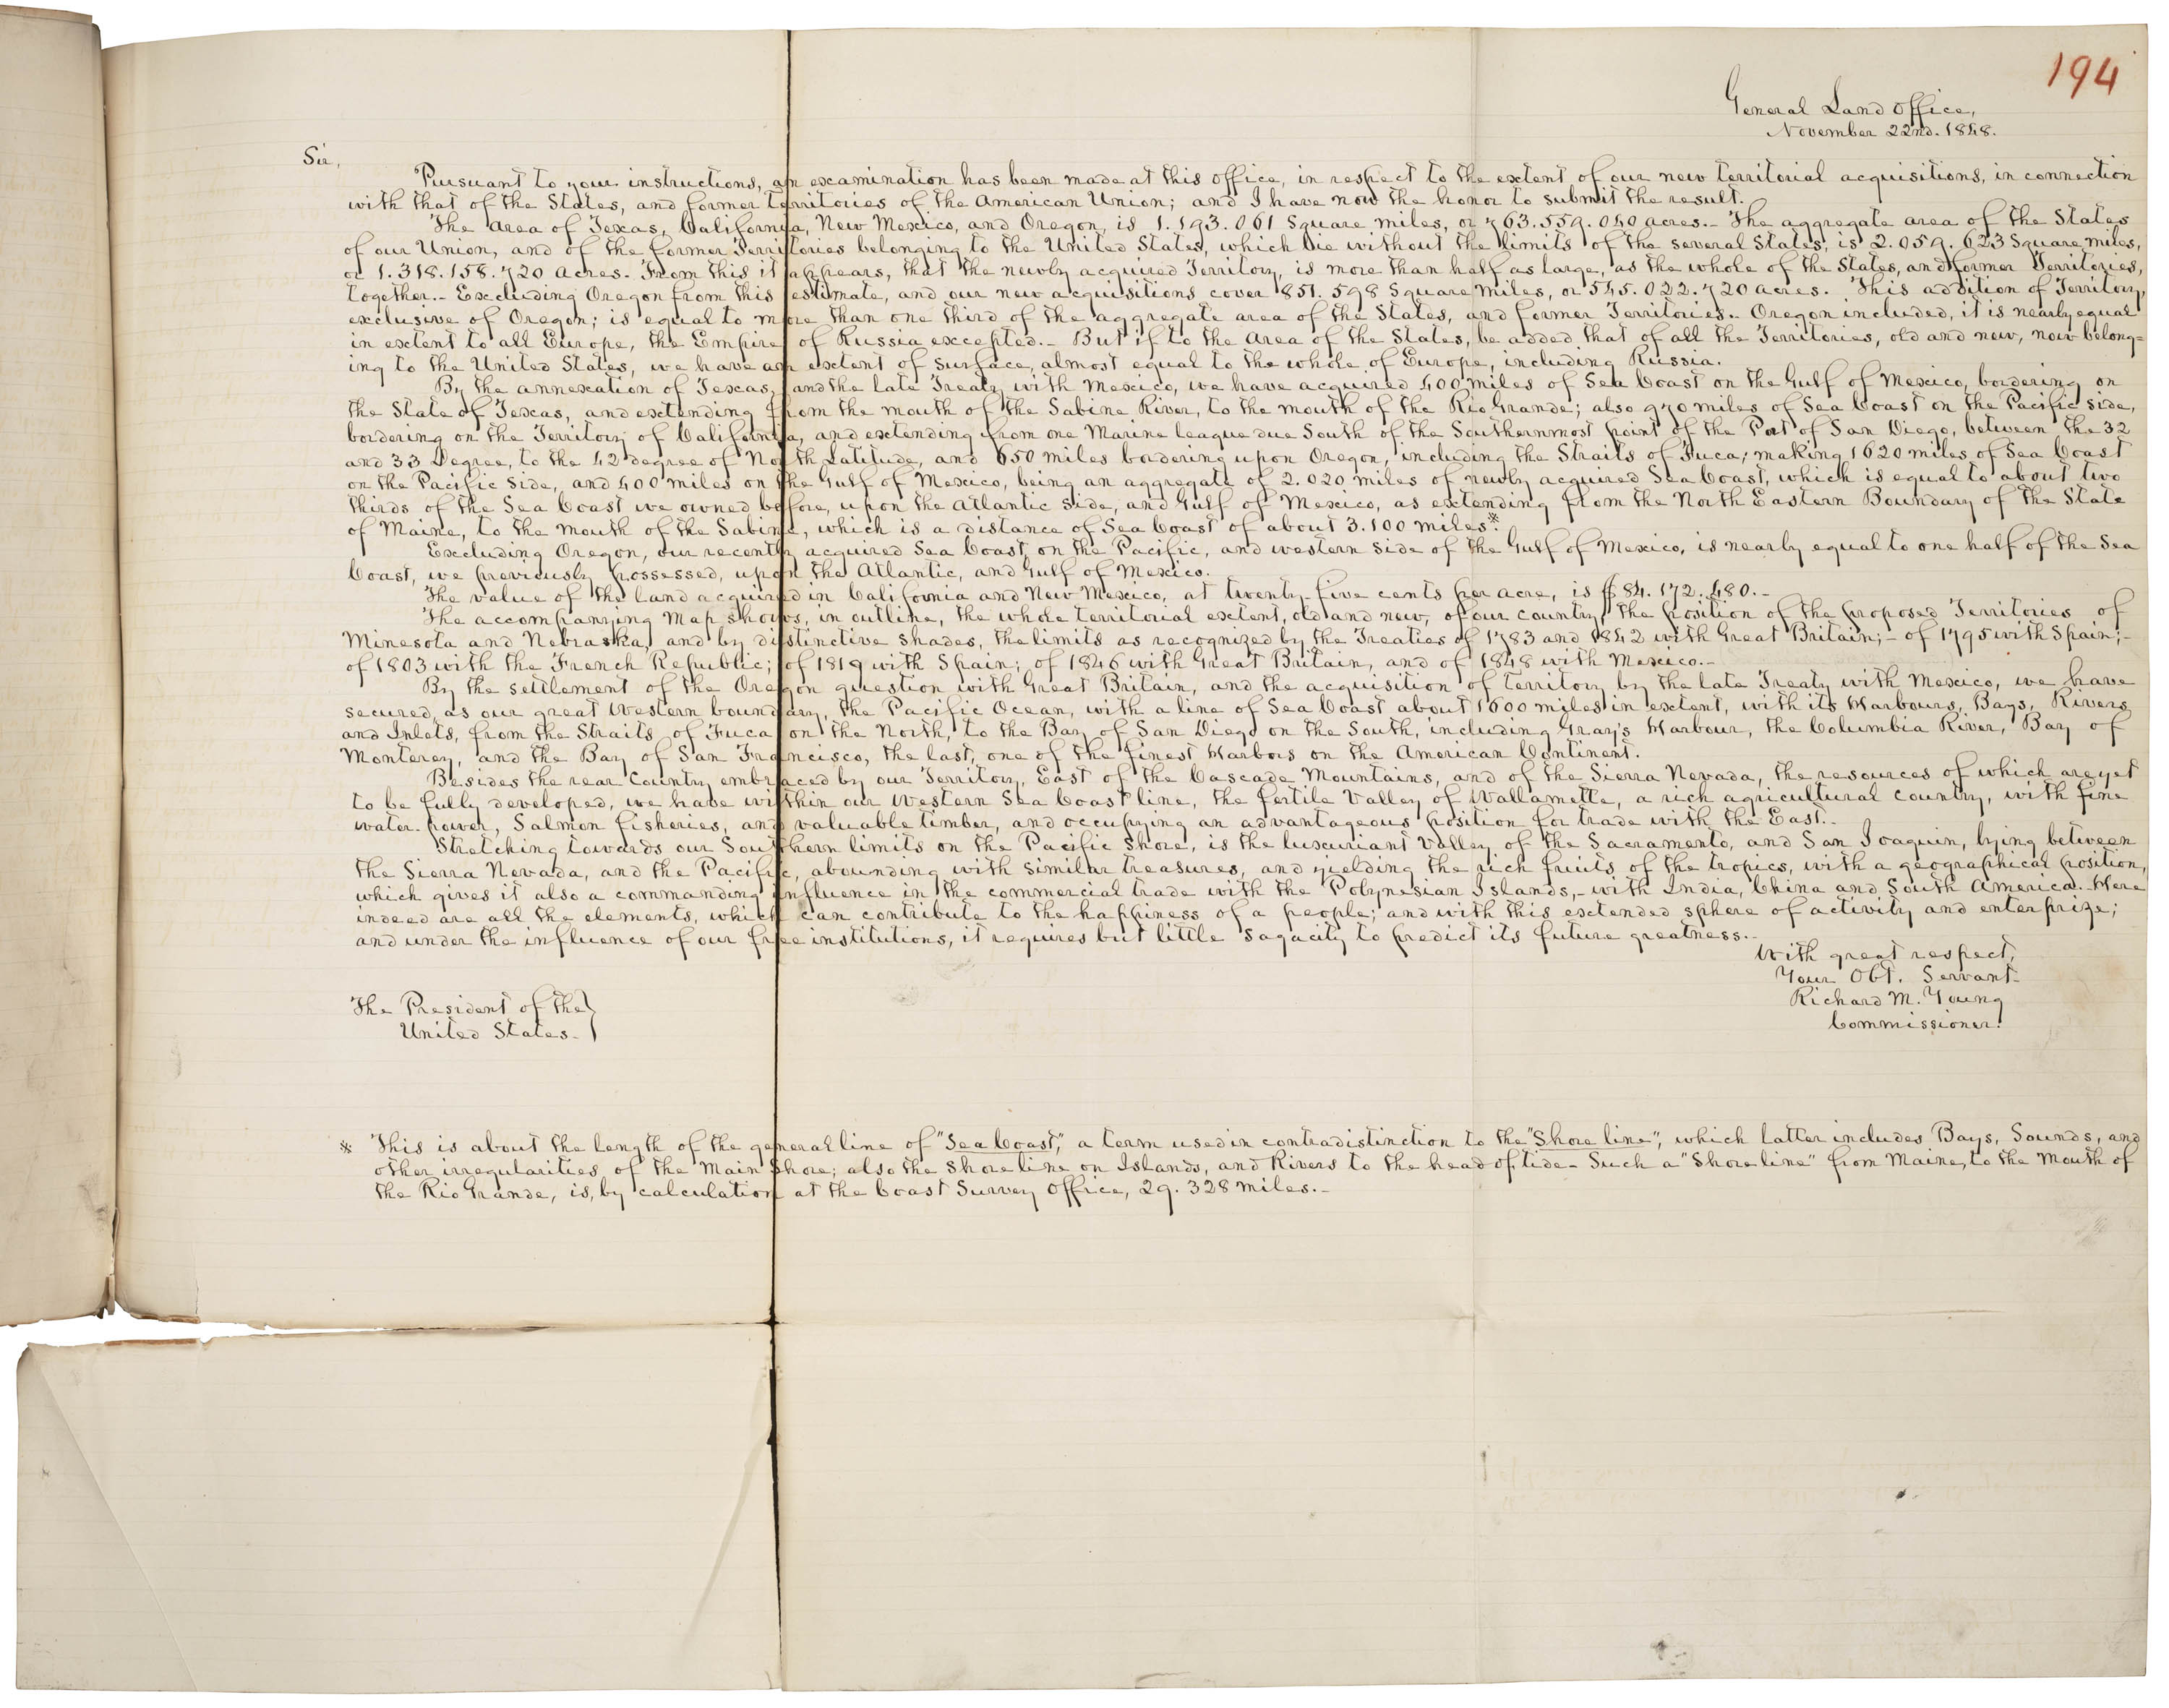 194
General Land Office,
November 22nd. 1848.
Sir,
Pursuant to your instructions, an examination has been made at this office, in respect to the extent of our new territorial acquisitions, in connection
with that of the States, and former territories of the American Union; and I have now the honor to submit the result.
The area of Texas, California, New Mexico, and Oregon, is 1.193.061 Square miles, or 763.559.040 acres.- The aggregate area of the States
of our Union, and of the former Territories belonging to the United States, which lie without the limits of the several States, is 2.059.623 Square miles,
or 1.318.158.720 acres. From this it appears, that the newly acquired Territory, is more than half as large, as the whole of the States, and former Territories,
together.- Excluding Oregon from this estimate, and our new acquisitions cover 851.598 Square miles, or 545.022.720 acres. This addition of Territory,
exclusive of Oregon; is equal to more than one third of the aggregate area of the States, and former Territories. Oregon included, it is nearly equal
in extent to all Europe, the Empire of Russia excepted.- But if to the area of the States, be added that of all the Territories, old and new, now belong=
ing to the United States, we have an extent of surface, almost equal to the whole of Europe, including Russia.
By the annexation of Texas, and the late Treaty with Mexico, we have acquired 400 miles of Sea Coast on the Gulf of Mexico, bordering on
the State of Texas, and extending from the mouth of the Sabine River, to the mouth of the Rio Grande; also 970 miles of Sea Coast on the Pacific side,
bordering on the Territory of California, and extending from one Marine league due South of the Southernmost point of the Port of San Diego, between the 32
and 33 Degree, to the 42 degree of North Latitude, and 650 miles bordering upon Oregon, including the Straits of Fuca; making 1620 miles of Sea Coast
on the Pacific Side, and 400 miles on the Gulf of Mexico, being an aggregate of 2.020 miles of newly acquired Sea Coast, which is equal to about two
thirds of the Sea Coast we owned before, upon the Atlantic side, and Gulf of Mexico, as extending from the North Eastern Boundary of the State
of Maine, to the mouth of the Sabine, which is a distance of Sea Coast of about 3.100 miles.*
Excluding Oregon, our recently acquired Sea Coast, on the Pacific, and western side of the Gulf of Mexico, is nearly equal to one half of the Sea
Coast, we previously possessed, upon the Atlantic, and Gulf of Mexico.
The value of the land acquired in California and New Mexico, at twenty five cents per acre, is $84.172.480.-
The accompanying Map shows, in outline, the whole territorial extent, old and new, of our country, the position of the proposed Territories of
Minesota and Nebraska, and by distinctive shades, the limits as recognized by the Treaties of 1783 and 1842 with Great Britain;- of 1795 with Spain;-
of 1803 with the French Republic; of 1819 with Spain; of 1846 with Great Britain, and of 1848 with Mexico.-
By the settlement of the Oregon question with Great Britain, and the acquisition of territory by the late Treaty with Mexico, we have
secured, as our great Western boundary, the Pacific Ocean, with a line of Sea Coast about 1600 miles in extent, with its Harbours, Bays, Rivers
and Inlets, from the Straits of Fuca on the North, to the Bay of San Diego on the South, including Gray's Harbour, the Columbia River, Bay of
Monterey, and the Bay of San Francisco, the last, one of the finest Harbors on the American Continent.
Besides the rear Country embraced by our Territory, East of the Cascade Mountains, and of the Sierra Nevada, the resources of which are yet
to be fully developed, we have within our Western Sea Coast line, the fertile Valley of Wallamette, a rich agricultural country, with fine
water power, Salmon fisheries, and valuable timber, and occupying an advantageous position for trade with the East.-
Stretching towards our Southern limits on the Pacific Shore, is the luxuriant Valley of the Sacramento, and San Joaquin, lying between
the Sierra Nevada, and the Pacific, abounding with similar treasures, and yielding the rich fruits of the tropics, with a geographical position,
which gives it also a commanding influence in the commercial trade with the Polynesian Islands,- with India, China and South America. Here
indeed are all the elements, which can contribute to the happiness of a people; and with this extended sphere of activity and enterprize;
and under the influence of our free institutions, it requires but little sagacity to predict its future greatness.-
With great respect,
Your Obt. Servant
Richard M. Young
Commissioner.
The President of the }
United States.
* This is about the length of the general line of "Sea Coast," a term used in contradistinction to the "Shore line", which latter includes Bays, Sounds, and
other irregularities, of the Main Shore; also the shore line on Islands, and Rivers to the head of tide- Such a "Shore line" from Maine, to the Mouth of
the Rio Grande, is, by calculation at the Coast Survey Office, 29.328 miles.-